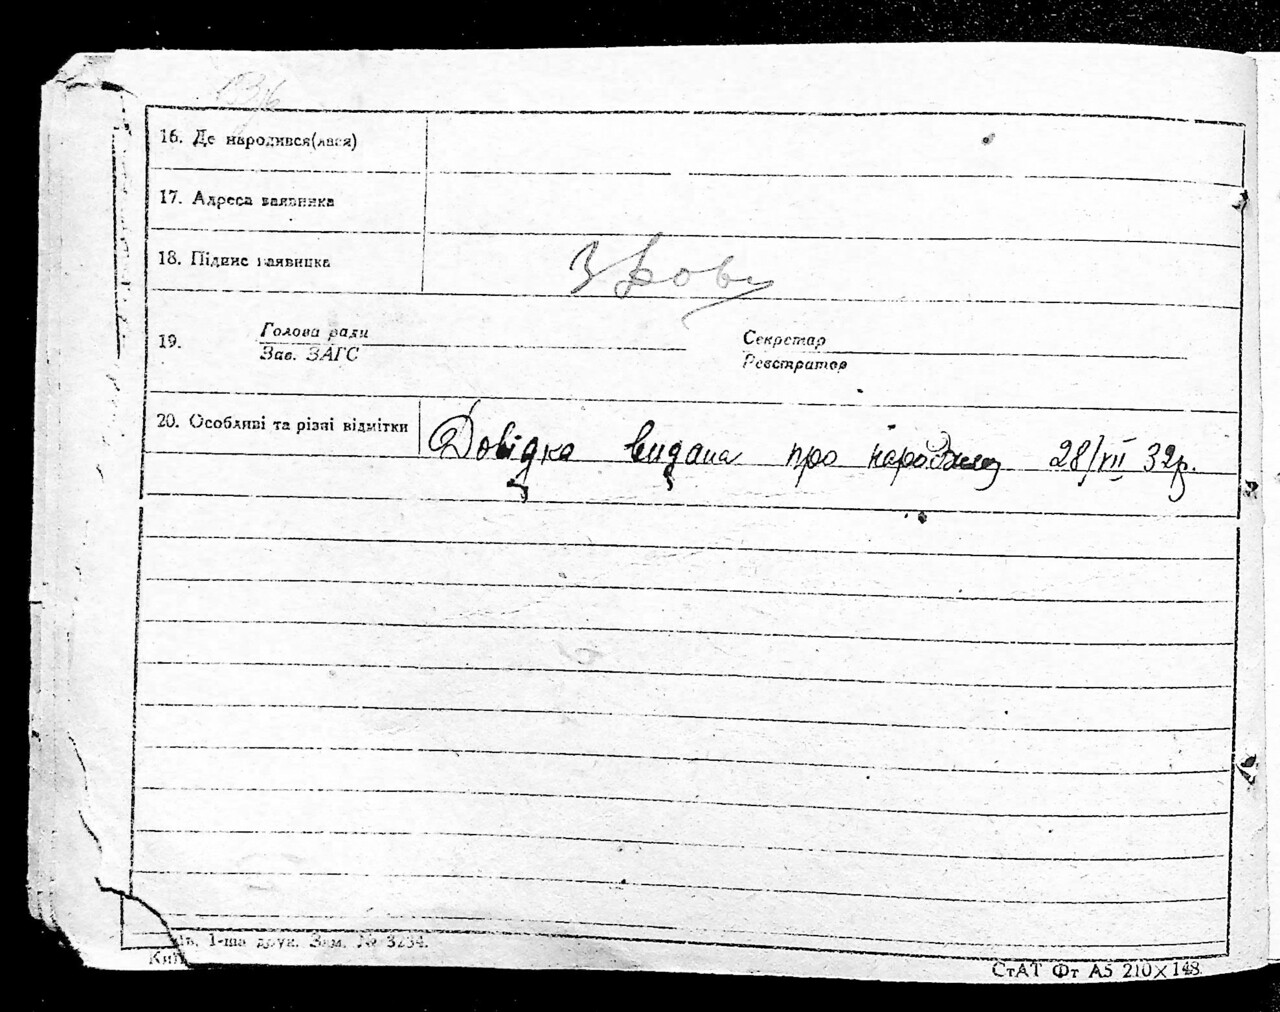 16. Де народився(лася)
17. Адреса заявника
18. Підпис заявника
19. Голова ради
Зав. ЗАГС
Секретар
Реєстратор
20. Особливі та різні відмітки Довідка видана про народжен 28/VII 32р.
1-ша друк. Зам. № 3234.
СтАТ Фт А5 210×148